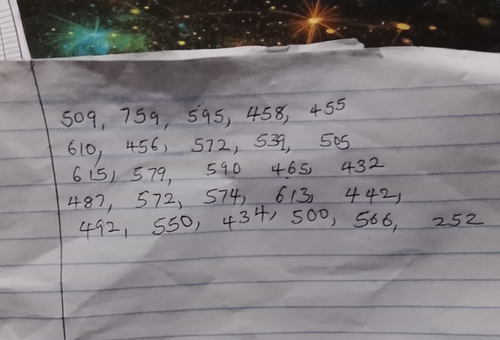 509, 759, 595, 458, 455
610, 456, 572, 539, 505
615, 579, 590 465, 432
487, 572, 574, 613, 442,
492, 550, 434, 500, 566, 252